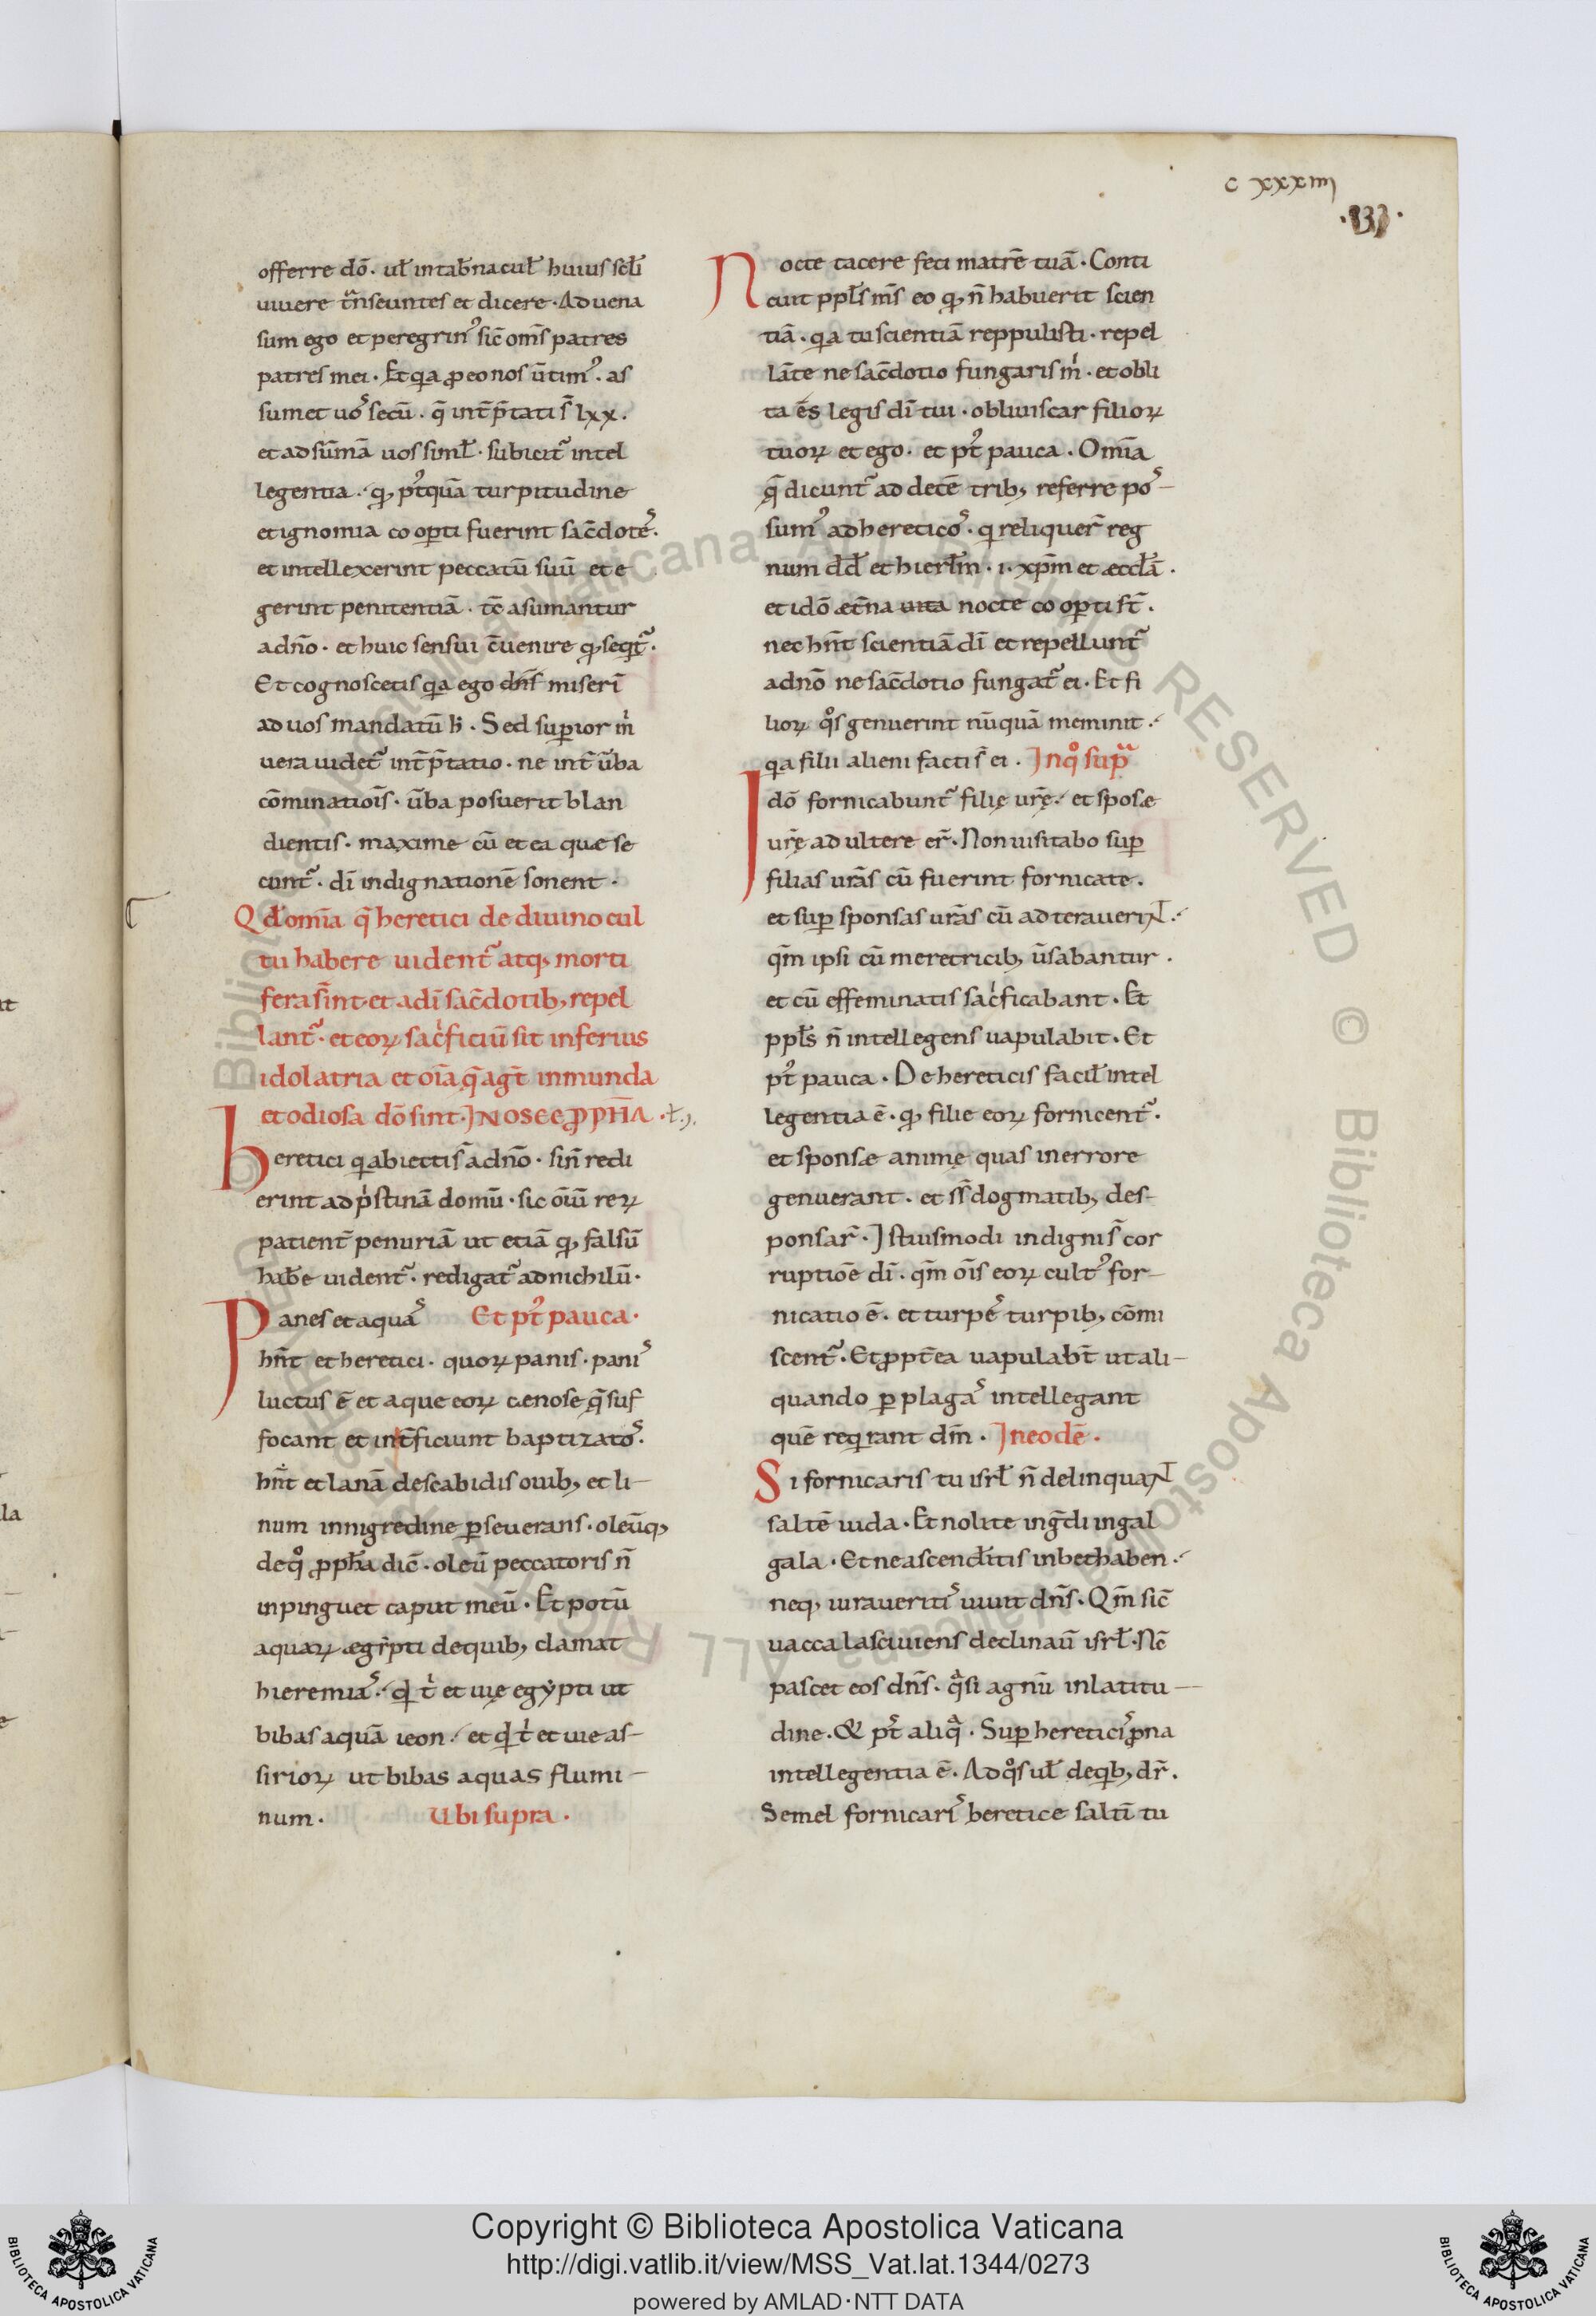 c xxxiiij
·133·
offerre dō. ul̄ in tab̄nacul̄ huius sc̄li
uiuere tr̄nseuntes et dicere. Aduena
sum ego et peregrin᾽ sic̄ om̄s patres
patres mei. Et qa ꝓ eo nos ūtim᾽. as
sumet uos secū. q̄ int̄p̄tati s̄ lxx.
et adsūmā uos simul̄. subicit̄ intel
legentia. qꝫ pt᾽quā turpitudine
et ignomia cooꝑti fuerint sac̄dotes.
et intellexerint peccatū suū et e
gerint penitentiā. tc̄ asumantur
adn̄o. et huic sensui c̄uenire qꝫ seqt̄.
Et cognoscetis qa ego dn̄s miseri̅
ad uos mandatū h̄. Sed suꝑior m̄
uera uidet̄ int̄p̄tatio. ne int̄ ūba
cōminatiōis. ūba posuerit blan
dientis. maxime cū et ea quæ se
cunt̄. dī indignationē sonent.
Qd̄ omīa q̄ heretici de diuino cul
tu habere uident̄ atqꝫ morti
fera s̄int et a dī sac̄dotibꝫ repel
lant̄. et eoꝝ sac̄ficiū sit inferius
idolatria et oīa q̄ agt̄ inmunda
et odiosa dō sint. IN OSEE ꝓPH̄A .t.
heretici q abiecti s̄ adn̄o. sin̄ redi
erint ad p̄stinā domū. sic oīū reꝝ
patient̄ penuriā ut etiā qꝫ falsū
hab̄e uident̄. redigat̄ ad nichilū.
Panes et aquas Et pt᾽ pauca.
hn̄t et heretici. quoꝝ panis. panis
luctus ē et aque eoꝝ cenose q̄ suf
focant et int̄ficiunt baptizatos.
hn̄t et lanā de scabidis ouibꝫ et li-
num in nigredine ꝑseuerans. oleūqꝫ
de qo ꝓph̄a dic̄. oleū peccatoris n̄
inpinguet caput meū. Et potū
aquaꝝ ægip̄ti de quibꝫ clamat
hieremias. qd t̄ et uię egẏpti ut
bibas aquā ieon. et qd t̄ et uie as-
sirioꝝ ut bibas aquas flumi-
num. Ubi supra.
Nocte tacere feci matrē tuā. Conti
cuit ppl̄s m̄s eo qꝫ n̄ habuerit scien
tiā. qa tu scientiā reppulisti. repel
lāte ne sac̄dotio fungaris m̄. et obli
ta ēs legis dī tui. obliuiscar filioꝝ
tuoꝝ et ego. et pt᾽ pauca. Omīa
q̄ dicunt̄ ad decē tribꝫ referre pos-
sum᾽ ad hereticos. q reliquer̄ reg
num dd̄ et hierl̄m. i. xp̄m et æccl̄ā.
et idō æt̄na uita nocte cooꝑti st̄.
nec hn̄t scientiā dī et repellunt̄
adn̄o ne sac̄dotio fungat̄ ei. Et fi
lioꝝ qos genuerint nūquā meminit.
qa filii alieni facti s̄ ei. In qo supra
Idō fornicabunt̄ filię ur̄ę. et sposæ
ur̄ę adultere er̄. Non uisitabo suꝑ
filias ur̄as cū fuerint fornicate.
et suꝑ sponsas ur̄as cū adterauerint.
qm̄ ipsi cū meretricibꝫ ūsabantur.
et cū effeminatis sac̄ficabant. Et
ppl̄s n̄ intellegens uapulabit. Et
pt᾽ pauca. De hereticis facil̄ intel
legentia ē. qꝫ filie eoꝝ fornicent̄.
et sponsæ animę quas in errore
genuerant. et ss̄ dogmatibꝫ des-
ponsar̄. Istiusmodi indigni s̄ cor
ruptiōe dī. qm̄ oīs eoꝝ cult᾽ for-
nicatio ē. et turpes turpibꝫ cōmi
scent̄. Et ꝓpt̄ea uapulabt̄ ut ali-
quando ꝑ plagas intellegant
quē reqrant dm̄. In eodē.
Si fornicaris tu isrl̄ n̄ delinquat
saltē iuda. Et nolite inḡdi in gal
gala. Et ne ascend̄itis in bethaben.
neqꝫ iuraueritis uiuit dn̄s. Qm̄ sic̄
uacca lasciuiens declinau̅ isrl̄. Nc̄
pascet eos dn̄s. qasi agnū in latitu-
dine. & pt᾽ aliqa. Super hereticis ꝓna
intellegentia ē. Ad qos ul̄ de qbꝫ dr̄.
Semel fornicaris heretice saltī tu
Copyright © Biblioteca Apostolica Vaticana
http://digi.vatlib.it/view/MSS_Vat.lat.1344/0273
powered by AMLAD·NTT DATA
BIBLIOTECA APOSTOLICA VATICANA
BIBLIOTECA APOSTOLICA VATICANA